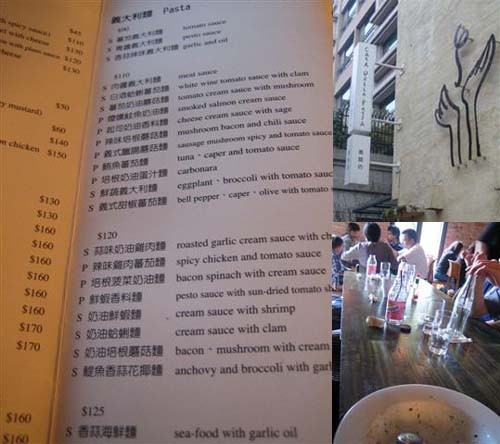 with spicy sauce) $45
$110
$130
$120
$130
y mustard) $50
$60
$140
chicken $150
$130
$130
$160
$160
$160
$160
$160
$160
$170
$170
$160
$160
義大利麵 Pasta
$90
S 蕃茄義大利麵 tomato sauce
S 青醬義大利麵 pesto sauce
S 香蒜辣味義大利麵 garlic and oil
$110
S 肉醬義大利麵 meat sauce
S 白酒蛤蜊蕃茄麵 white wine tomato sauce with clam
S 蕃茄奶油蘑菇麵 tomato cream sauce with mushroom
P 燻鮭魚奶油麵 smoked salmon cream sauce
P 起司奶油香料麵 cheese cream sauce with sage
P 辣味培根蘑菇麵 mushroom bacon and chili sauce
P 義式臘腸蘑菇麵 sausage mushroom spicy and tomato
P 鮪魚蕃茄麵 tuna、caper and tomato sauce
P 培根奶油蛋汁麵 carbonara
S 鮮蔬義大利麵 eggplant、broccoli with tomato
S 義式甜椒蕃茄麵 bell pepper、caper、olive with tomato
$120
S 蒜味奶油雞肉麵 roasted garlic cream sauce with ch
P 辣味雞肉蕃茄麵 spicy chicken and tomato sauce
P 培根菠菜奶油麵 bacon spinach with cream sauce
P 鮮蝦香料麵 pesto sauce with sun-dried tomato sh
S 奶油鮮蝦麵 cream sauce with shrimp
S 奶油蛤蜊麵 cream sauce with clam
S 奶油培根蘑菇麵 bacon、mushroom with cream
S 鯷魚香蒜花椰麵 anchovy and broccoli with garl
$125
S 香蒜海鮮麵 sea-food with garlic oil
CASA DELLA PASTA